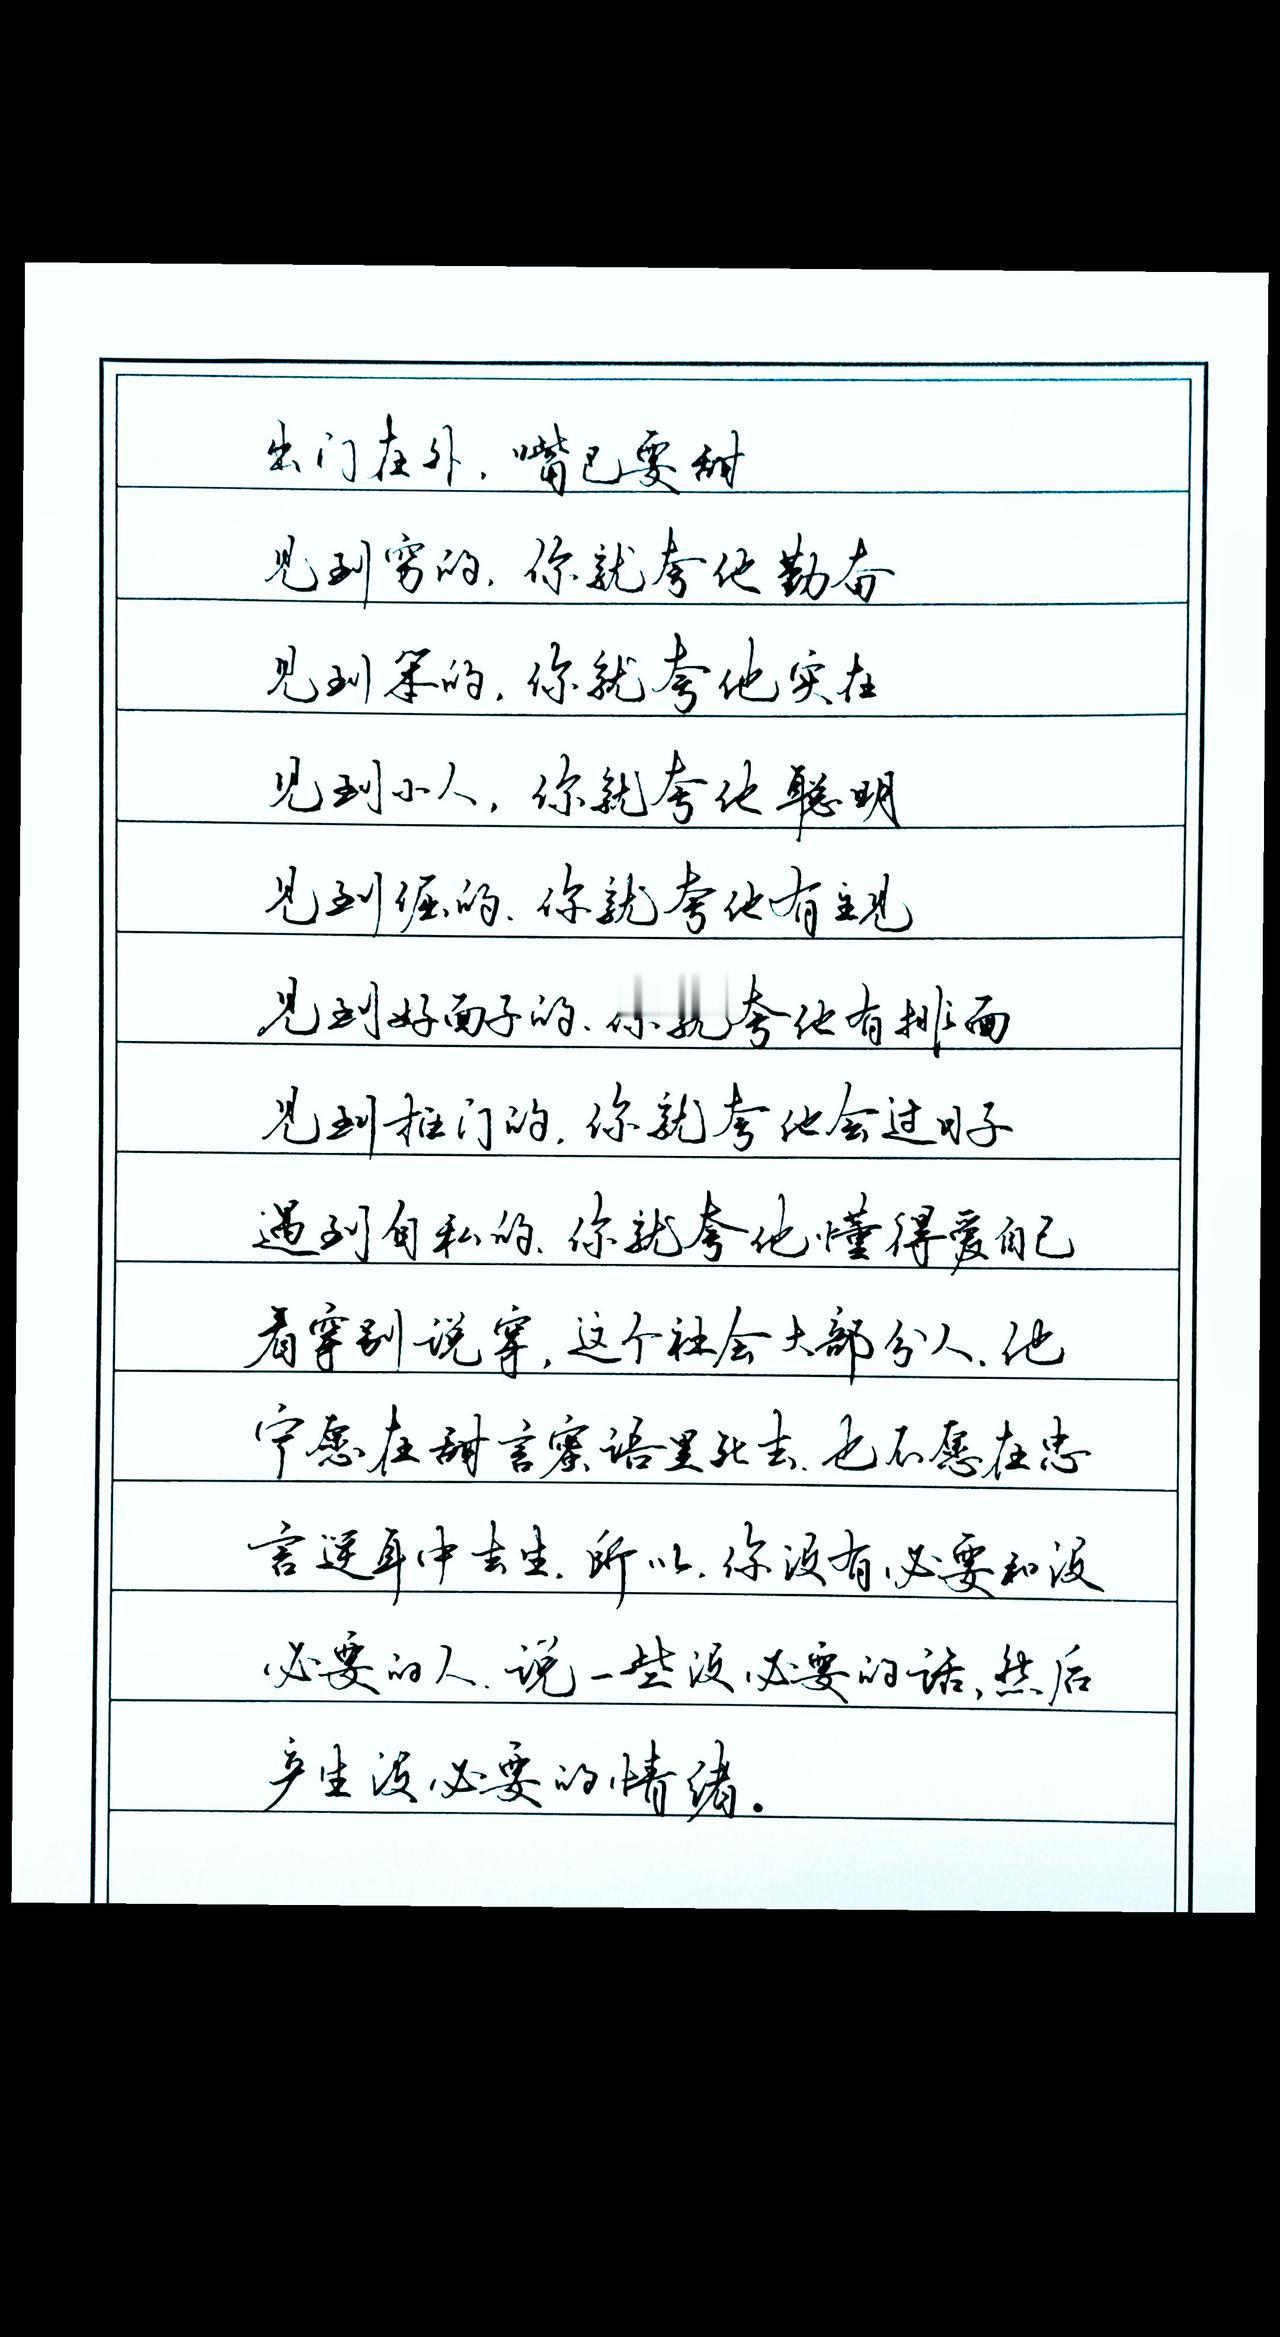 出门在外，嘴巴要甜
见到穷的，你就夸他勤奋
见到笨的，你就夸他实在
见到小人，你就夸他聪明
见到倔的、你就夸他有主见
见到好面子的、你就夸他有排面
见到抠门的，你就夸他会过日子
遇到自私的、你就夸他懂得爱自己
看穿别说穿，这个社会大部分人、他
宁愿在甜言蜜语里死去、也不愿在忠
言逆耳中去生．所以，你没有必要和没
必要的人、说一些没必要的话，然后
产生没必要的情绪。